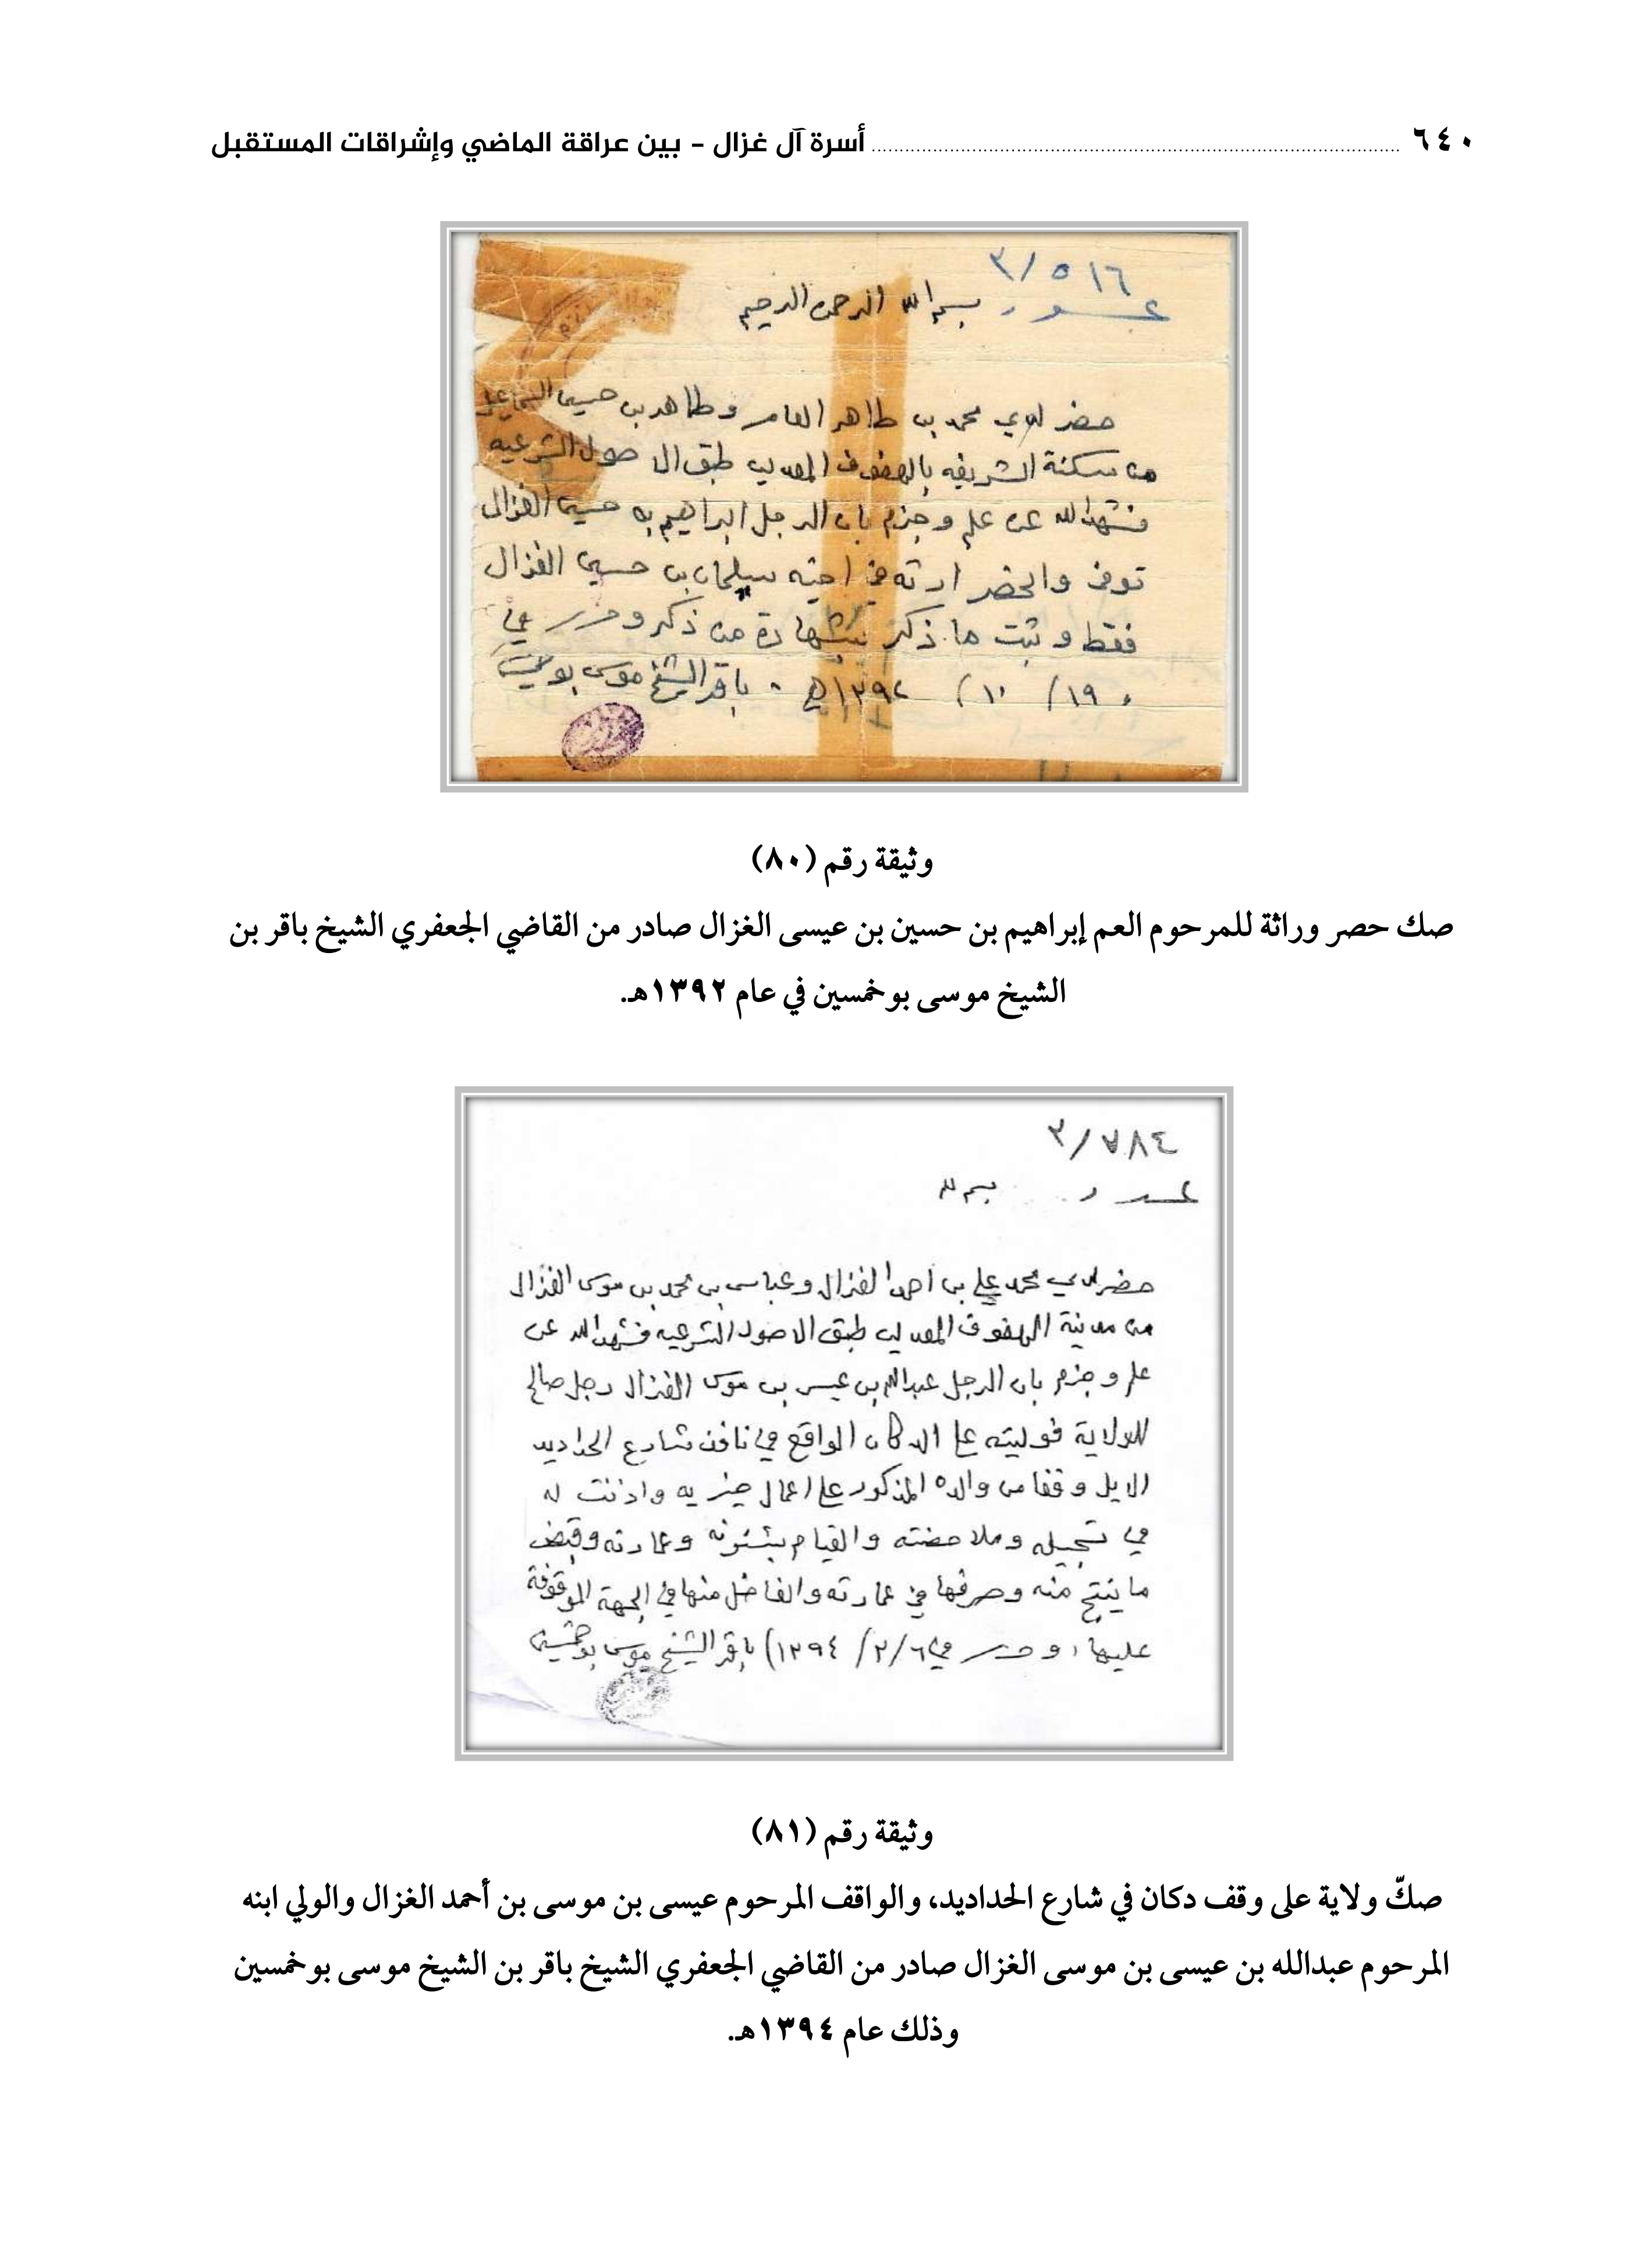 ٦٤٠ أسرة آل غزال - بين عراقة الماضي وإشراقات المستقبل
٣/٥١٦
بسم الله الرحمن الرحيم
حضر لدي محمد بن طاهر العامر وطاهر بن حسين
من سكنة الشريفه بالهفوف المعدلين طبق الاصول الشرعيه
فشهدا لله عن علم وجزم بان الرجل ابراهيم بن حسين الغزال
توفى وانحضر ارثه في اخيه سلمان بن حسين الغزال
فقط وثبت ما ذكر بشهادة من ذكر وحرر في
١٩/ ١٠/ ١٣٩٢هـ باقر الشيخ موسى بوخمسين
وثيقة رقم (٨٠)
صك حصر وراثة للمرحوم العم إبراهيم بن حسين بن عيسى الغزال صادر من القاضي الجعفري الشيخ باقر بن
الشيخ موسى بوخمسين في عام ١٣٩٢هـ.
٣/٧٨٤
بسم الله
حضر لدي محمد علي بن احمد الغزال وعباس بن محمد بن موسى الغزال
من مدينة الهفوف المعدلين طبق الاصول الشرعيه فشهدا لله عن
علم وجزم بان الرجل عبدالله بن عيسى بن موسى الغزال رجل صالح
للولاية فوليته على الدكان الواقع في نافذ شارع الحداديد
الايل وقفا من والده المذكور على اعمال خيريه واذنت له
في تسجيله وملاحضته والقيام بشئونه وعمارته وقبض
ما ينتج منه وصرفها في عمارته والفاضل منها في الجهة الموقوفة
عليها وحرر في ٦/٢/ ١٣٩٤) باقر الشيخ موسى بوخمسين
وثيقة رقم (٨١)
صكّ ولاية على وقف دكان في شارع الحداديد، والواقف المرحوم عيسى بن موسى بن أحمد الغزال والولي ابنه
المرحوم عبدالله بن عيسى بن موسى الغزال صادر من القاضي الجعفري الشيخ باقر بن الشيخ موسى بوخمسين
وذلك عام ١٣٩٤هـ.